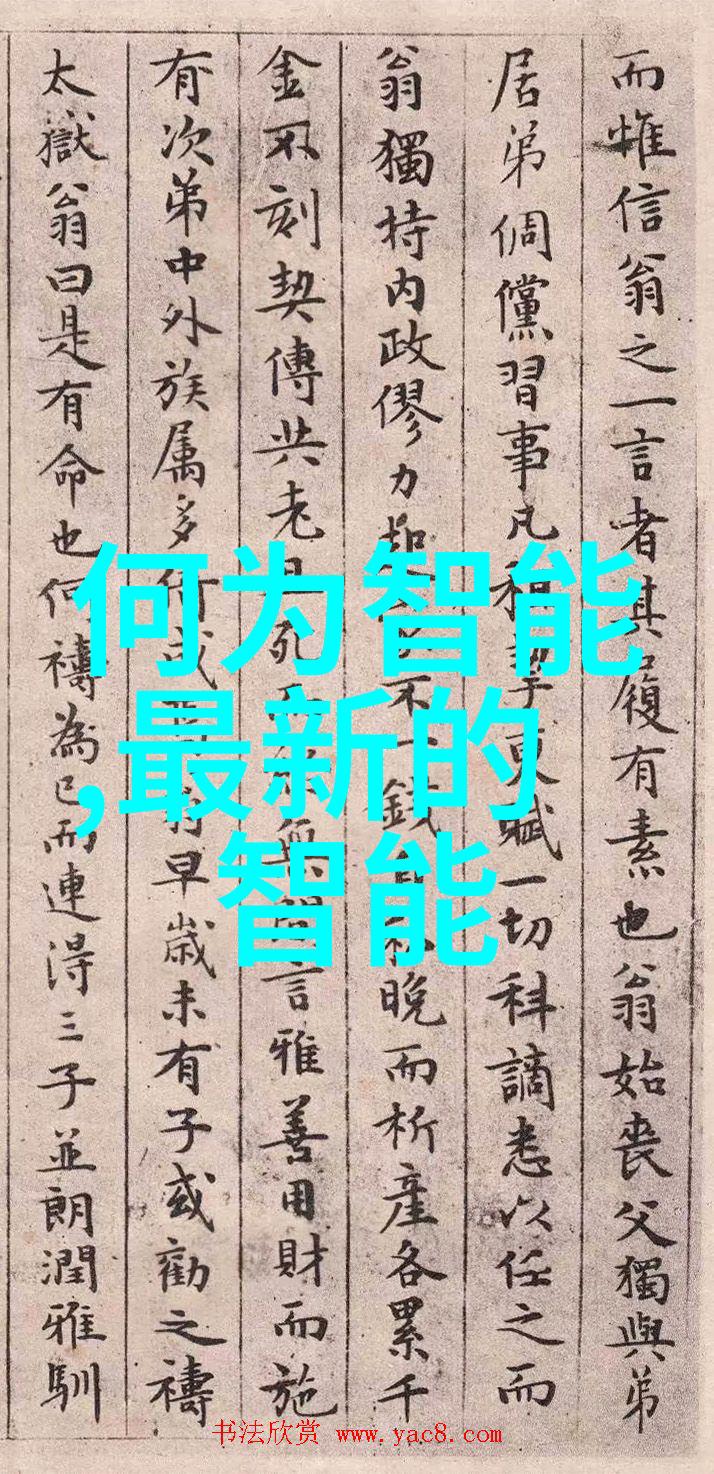 而惟信翁之一言者其履有素也翁始喪父獨與弟
居弟倜儻習事凡稱 更賦一切科謫悉以任之而
翁獨持内政僇力 不一錢 私晚而析產各累千
金不刻契傳共老 死 無 言雅善用財而施
有次弟中外族属多所成 翁早歲未有子或勸之禱
太嶽翁曰是有命也何禱為已而連得三子並朗潤雅馴
何为智能
,最新的
智能
书法欣赏 www.yac8.com